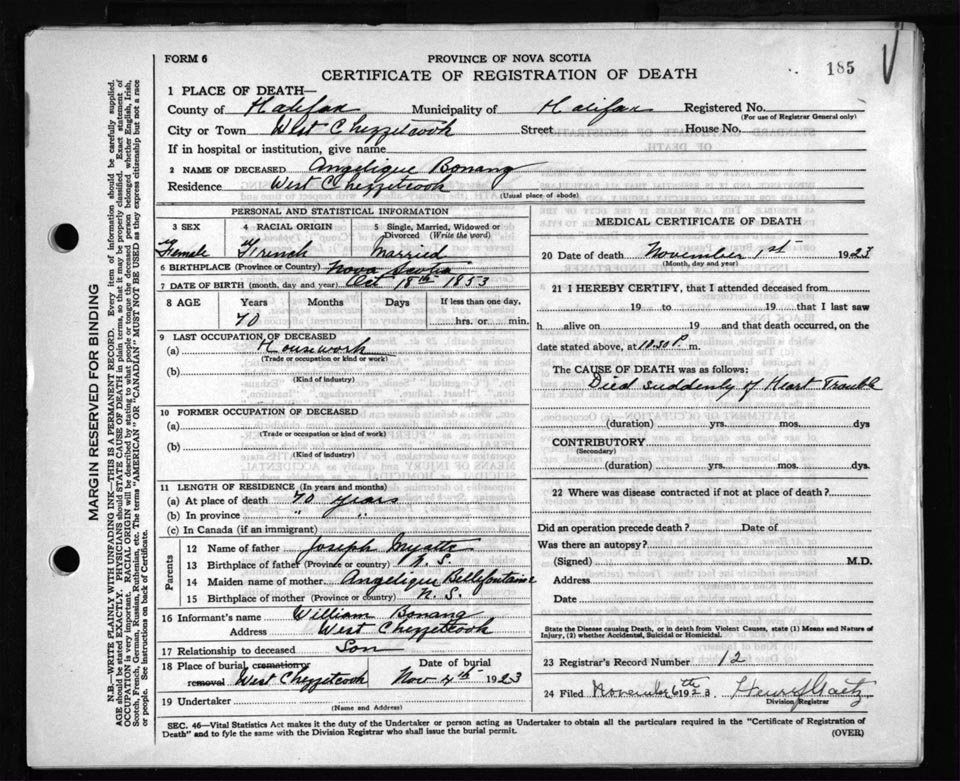 185
FORM 6
PROVINCE OF NOVA SCOTIA
CERTIFICATE OF REGISTRATION OF DEATH
1 PLACE OF DEATH—
County of Halifax Municipality of Halifax Registered No.
(For use of Registrar General only)
City or Town West Chezzetcook Street House No.
If in hospital or institution, give name
2 NAME OF DECEASED Angelique Bonang
Residence West Chezzetcook
(Usual place of abode)
PERSONAL AND STATISTICAL INFORMATION
3 SEX 4 RACIAL ORIGIN 5 Single, Married, Widowed or
Divorced (Write the word)
Female French Married
6 BIRTHPLACE (Province or Country) Nova Scotia
7 DATE OF BIRTH (month, day and year) Oct 18th 1853
8 AGE Years Months Days If less than one day,
70 hrs. or min.
9 LAST OCCUPATION OF DECEASED
(a) Housework
(Trade or occupation or kind of work)
(b)
(Kind of industry)
10 FORMER OCCUPATION OF DECEASED
(a)
(Trade or occupation or kind of work)
(b)
(Kind of industry)
11 LENGTH OF RESIDENCE (In years and months)
(a) At place of death 70 years
(b) In province " "
(c) In Canada (if an immigrant)
Parents
12 Name of father Joseph Myatte
13 Birthplace of father (Province or country) N.S.
14 Maiden name of mother Angelique Bellefontaine
15 Birthplace of mother (Province or country) N.S.
16 Informant's name William Bonang
Address West Chezzetcook
17 Relationship to deceased Son
18 Place of burial, cremation or Date of burial
removal West Chezzetcook Nov 4th 1923
19 Undertaker
(Name and Address)
MEDICAL CERTIFICATE OF DEATH
20 Date of death November 1st 1923
(Month, day and year)
21 I HEREBY CERTIFY, that I attended deceased from
19 to 19 that I last saw
h alive on 19 and that death occurred, on
date stated above, at 10.30 P. m.
The CAUSE OF DEATH was as follows:
Died suddenly of Heart Trouble
(duration) yrs. mos. dys
CONTRIBUTORY
(Secondary)
(duration) yrs. mos. dys.
22 Where was disease contracted if not at place of death?
Did an operation precede death? Date of
Was there an autopsy?
(Signed) M.D.
Address
Date
State the Disease causing Death, or in death from Violent Causes, state (1) Means and Nature of
Injury, (2) whether Accidental, Suicidal or Homicidal.
23 Registrar's Record Number 12
24 Filed November 6th 1923 Henry Gaetz
Division Registrar
SEC. 46—Vital Statistics Act makes it the duty of the Undertaker or person acting as Undertaker to obtain all the particulars required in the "Certificate of Registration of
Death" and to fyle the same with the Division Registrar who shall issue the burial permit. (OVER)
MARGIN RESERVED FOR BINDING
N.B.—WRITE PLAINLY WITH UNFADING INK—THIS IS A PERMANENT RECORD. Every item of information should be carefully supplied.
AGE should be stated EXACTLY. PHYSICIANS should STATE CAUSE OF DEATH in plain terms, so that it may be properly classified. Exact statement of
OCCUPATION is very important. RACIAL ORIGIN will be described by stating to what people or tongue the deceased person belonged whether English, Irish,
Scotch, French, German, Russian, Ruthenian, etc. The terms "AMERICAN" OR "CANADIAN" MUST NOT BE USED as they express citizenship but not a race
or people. See instructions on back of Certificate.